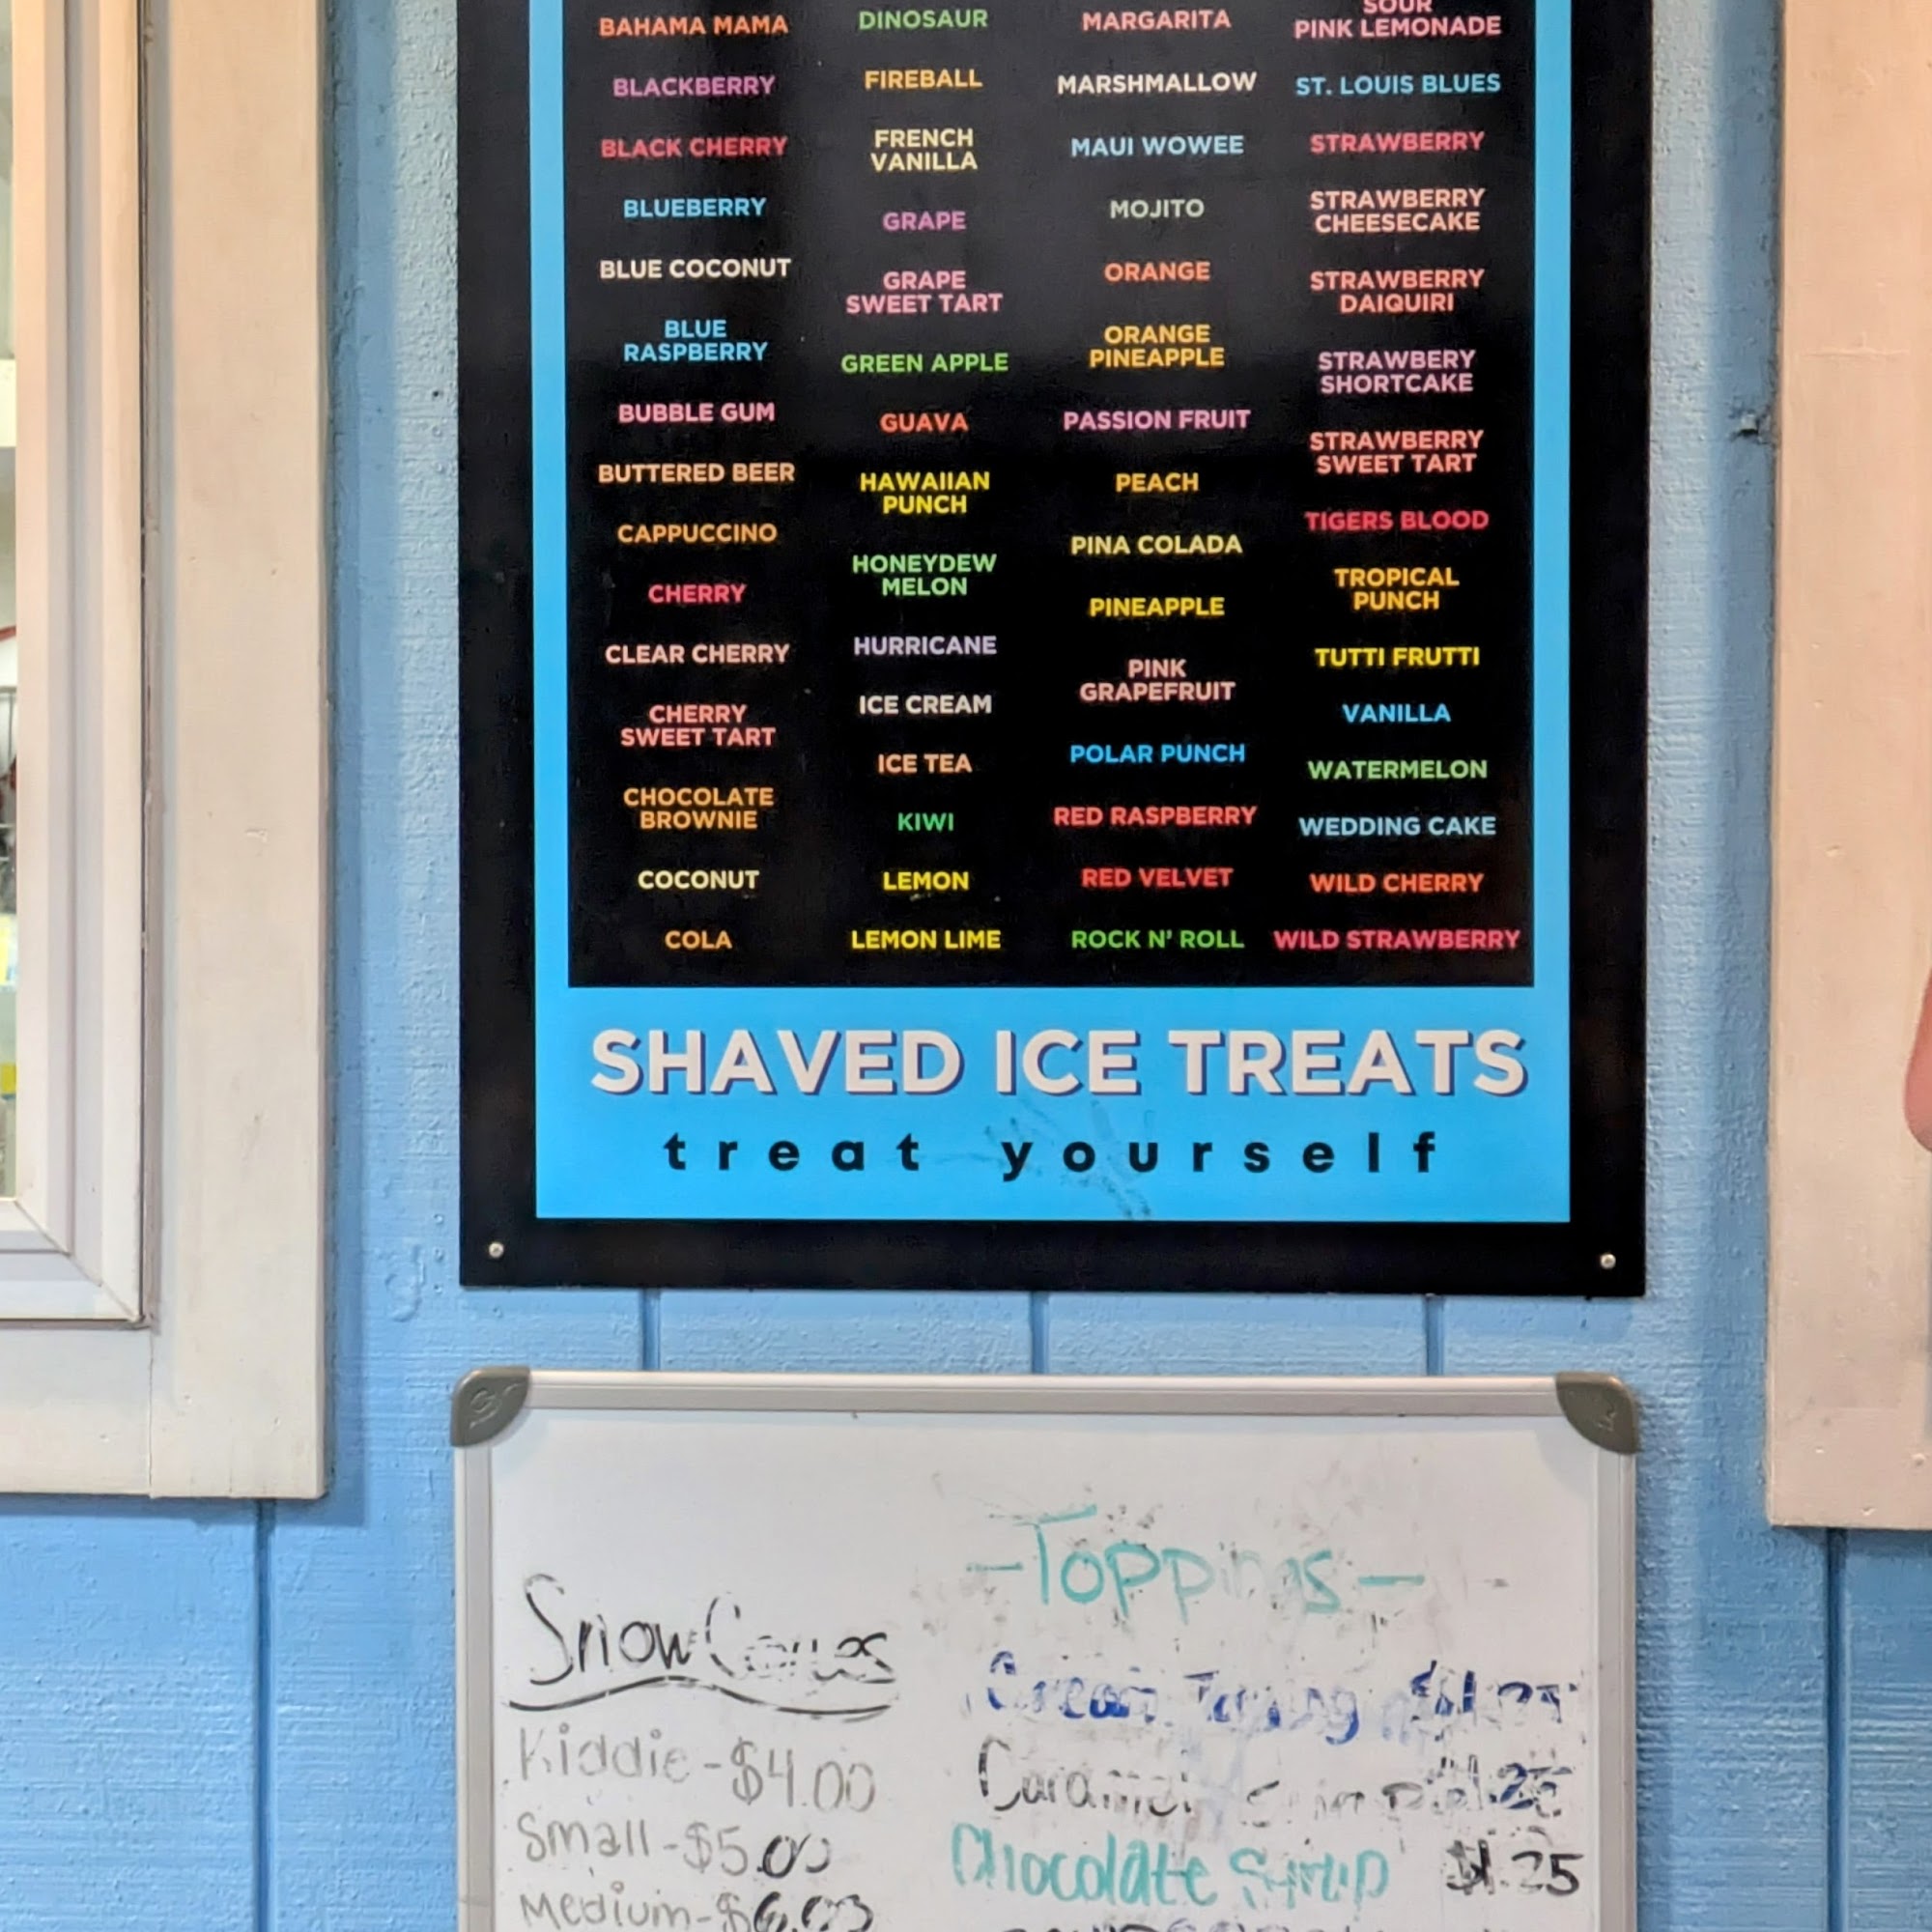 BAHAMA MAMA
BLACKBERRY
BLACK CHERRY
BLUEBERRY
BLUE COCONUT
BLUE
RASPBERRY
BUBBLE GUM
BUTTERED BEER
CAPPUCCINO
CHERRY
CLEAR CHERRY
CHERRY
SWEET TART
CHOCOLATE
BROWNIE
COCONUT
COLA
DINOSAUR
FIREBALL
FRENCH
VANILLA
GRAPE
GRAPE
SWEET TART
GREEN APPLE
GUAVA
HAWAIIAN
PUNCH
HONEYDEW
MELON
HURRICANE
ICE CREAM
ICE TEA
KIWI
LEMON
LEMON LIME
MARGARITA
MARSHMALLOW
MAUI WOWEE
MOJITO
ORANGE
ORANGE
PINEAPPLE
PASSION FRUIT
PEACH
PINA COLADA
PINEAPPLE
PINK
GRAPEFRUIT
POLAR PUNCH
RED RASPBERRY
RED VELVET
ROCK N' ROLL
SOUR
PINK LEMONADE
ST. LOUIS BLUES
STRAWBERRY
STRAWBERRY
CHEESECAKE
STRAWBERRY
DAIQUIRI
STRAWBERY
SHORTCAKE
STRAWBERRY
SWEET TART
TIGERS BLOOD
TROPICAL
PUNCH
TUTTI FRUTTI
VANILLA
WATERMELON
WEDDING CAKE
WILD CHERRY
WILD STRAWBERRY
SHAVED ICE TREATS
treat yourself
Snow Cones
Kiddie - $4.00
Small - $5.00
Medium - $6.00
- Toppings -
Cream Topping $1.25
Caramel $1.25
Chocolate Syrup $1.25